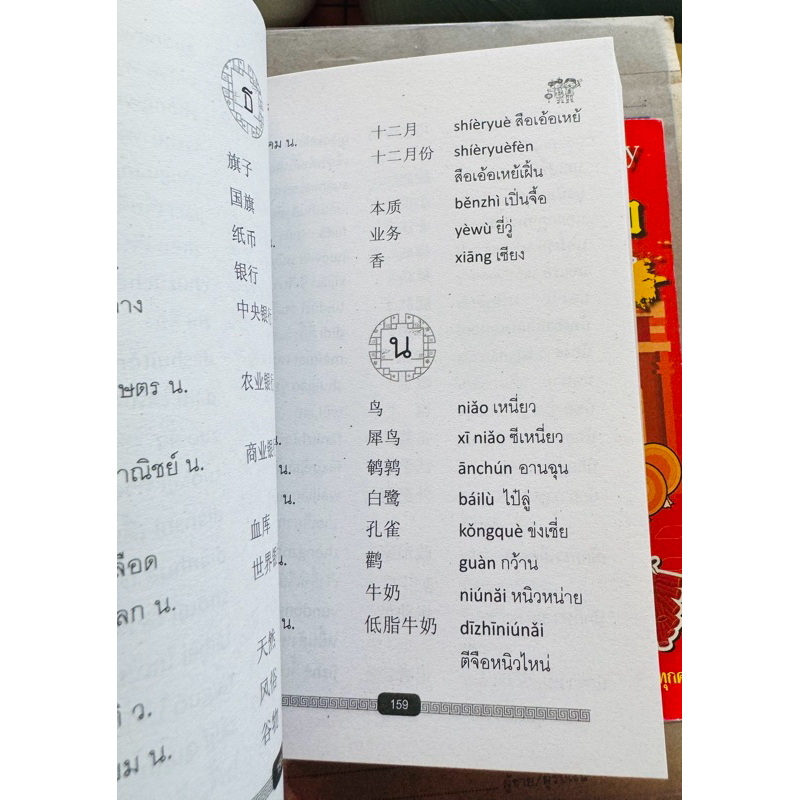 ธ
旗子
国旗
纸币
银行
าง
中央银行
ษตร น.
农业银行
าณิชย์ น.
商业银
血库
ลือด
世界银
ลก น.
天然
ว.
风俗
谷物
ยม น.
คม น.
十二月 shíèryuè สือเอ้อเหย้
十二月份 shíèryuèfèn
สือเอ้อเหย้เฝิ้น
本质 běnzhì เปิ่นจื้อ
น.
业务 yèwù ยี่วู่
香 xiāng เซียง
น
鸟 niǎo เหนี่ยว
น.
犀鸟 xī niǎo ซีเหนี่ยว
น.
鹌鹑 ānchún อานฉุน
น.
白鹭 báilù ไป๋ลู่
孔雀 kǒngquè ข่งเชี่ย
น.
鹳 guàn กว้าน
牛奶 niúnǎi หนิวหน่าย
น.
低脂牛奶 dīzhīniúnǎi
ตีจือหนิวไหน่
159